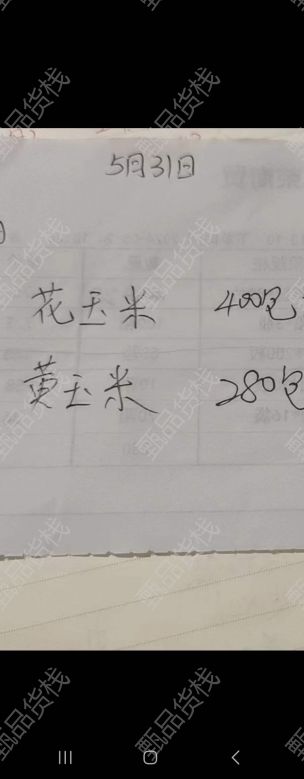 5月31日
花玉米 400包
黄玉米 280包
甄品货栈